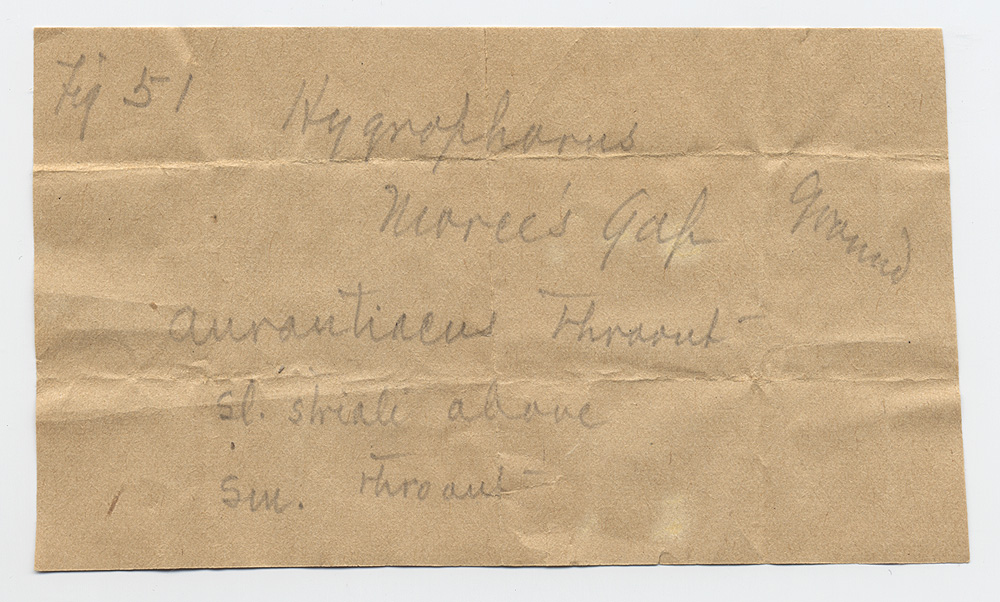 Fig 51
Hygrophorus
Moree's Gap Ground
aurantiacus Throout
sl. striate above
sm. Throout